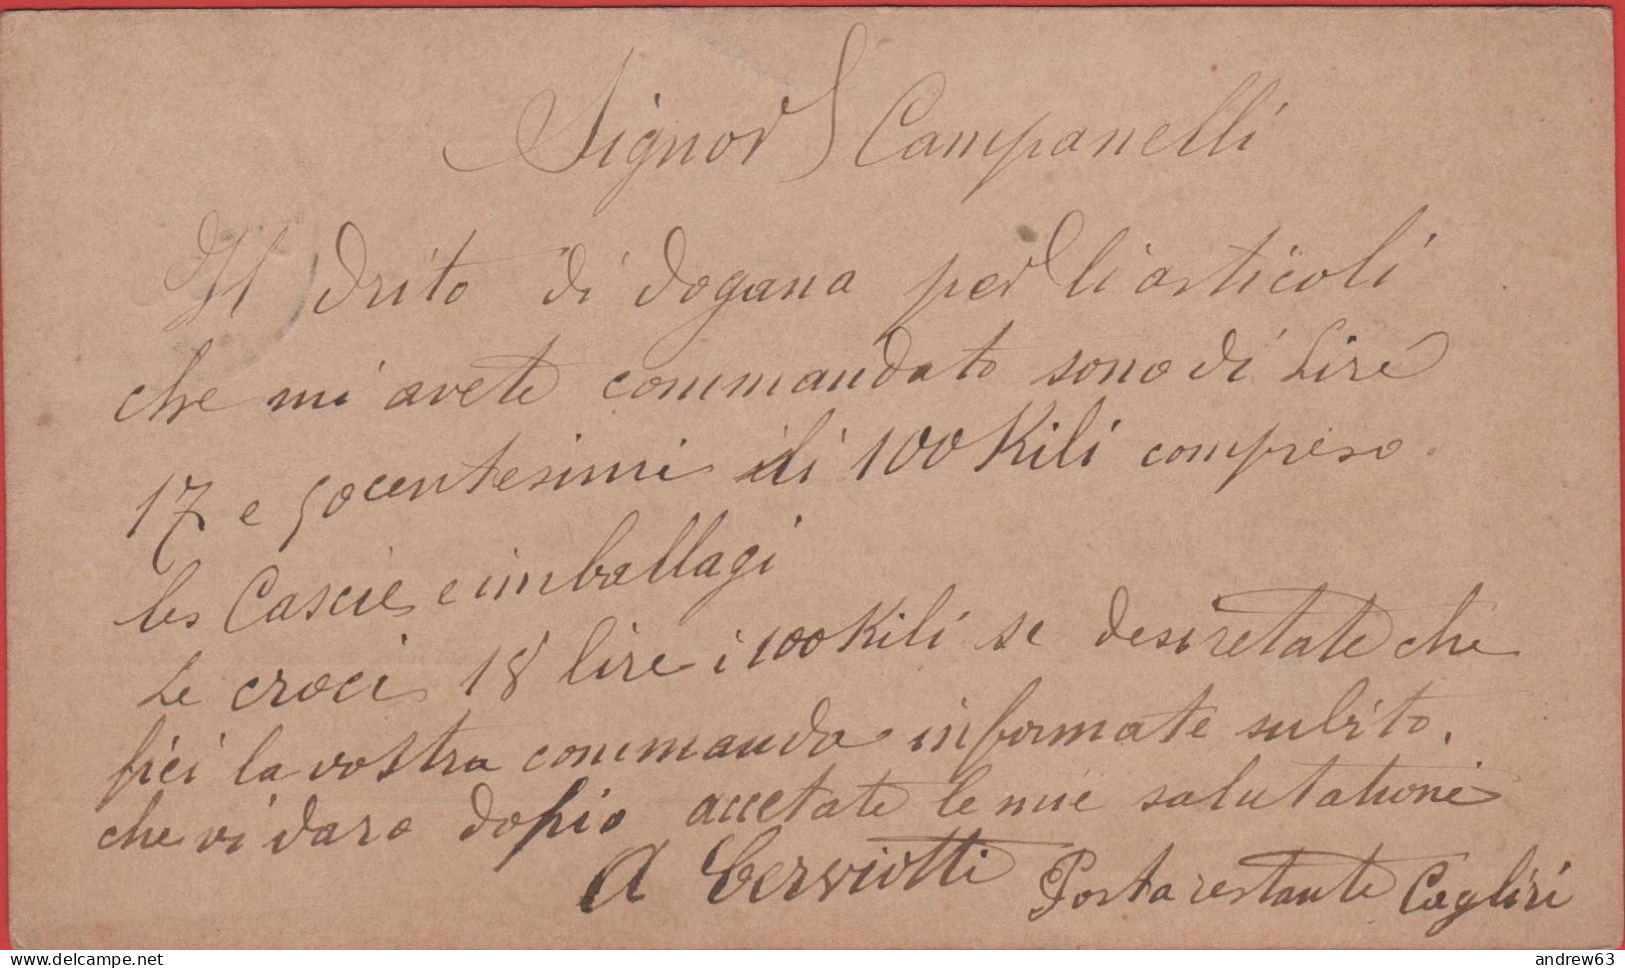 Signor Campanelli
Il drito di dogana per li articoli
che mi avete commandato sono di Lire
17 e 50 centesimi di 100 Kili compreso
les Cascie e imballagi
Le croci 18 lire i 100 Kili se desiretate che
fici la vostra commanda informate subito.
che vi daro dopio accetate le mie salutationi
A Cerviotti Posta restante Cagliri
delcampe.net
andrew63